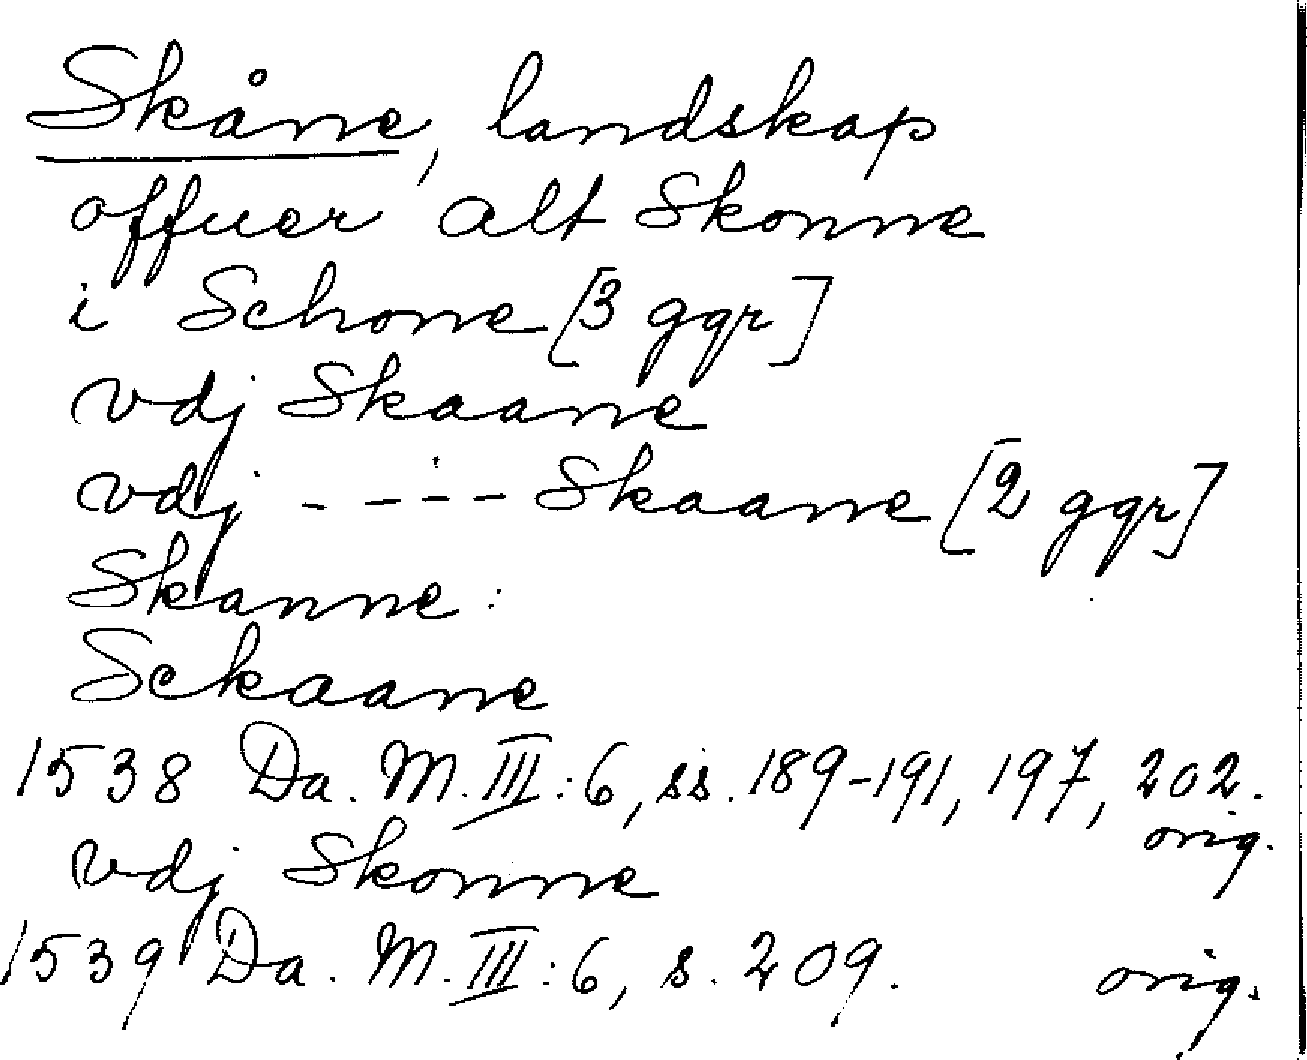 Skåne, landskap
offuer alt Skonne
i Schone [3 ggr]
vdj Skaane
vdj - - - - Skaane [2 ggr]
Skanne:
Sckaane
1538 Da. M. III:6, ss. 189-191, 197, 202.
orig.
vdj Skonne
1539 Da. M. III:6, s. 209. orig.